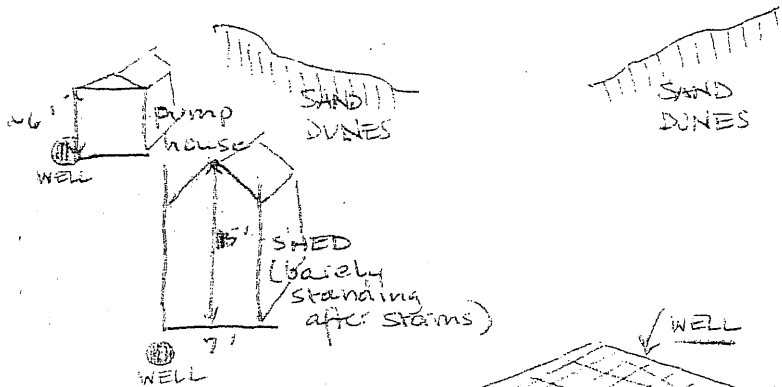 ~6'
pump
house
WELL
SAND
DUNES
SAND
DUNES
15'
SHED
(barely
standing
after storms)
7'
WELL
WELL